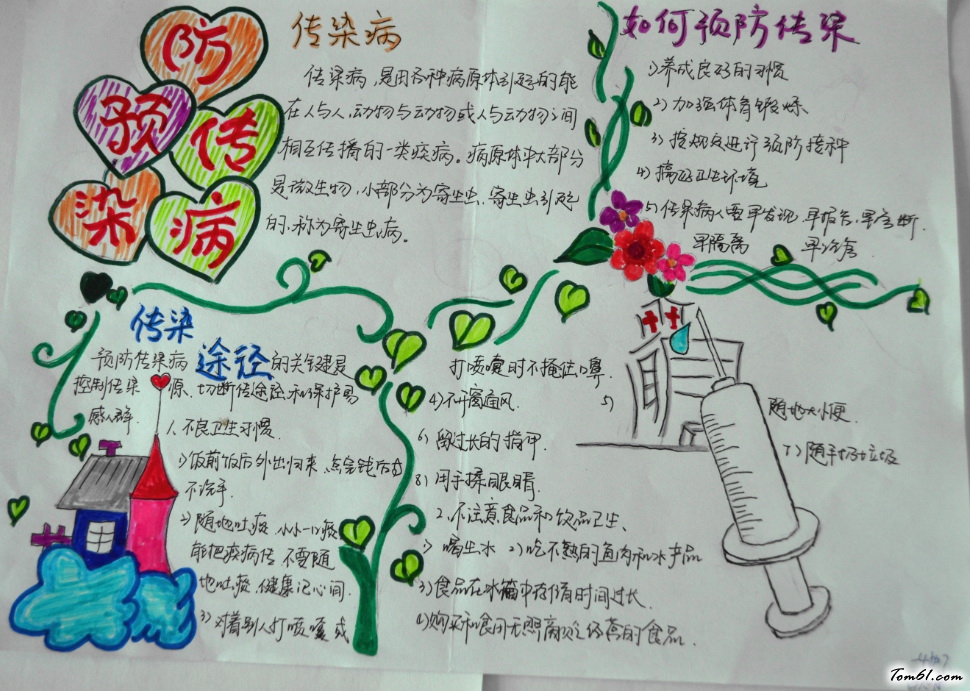 预防传染病
传染病
传染病，是由各种病原体引起的能
在人与人、动物与动物或人与动物之间
相互传播的一类疾病。病原体中大部分
是微生物，小部分为寄生虫，寄生虫引起
的，称为寄生虫病。
如何预防传染
1)养成良好的习惯
2)加强体育锻炼
3)按规定进行预防接种
4)搞好卫生环境
5)传染病人要早发现，早报告，早诊断，
早隔离 早治疗
传染
途径
预防传染病 的关键是
控制传染 源、切断传途径和保护易
感人群
1、不良卫生习惯
1)饭前饭后外出归来、点完钱后也
不洗手
2)随地吐痰 小小一口痰
能把疾病传 不要随
地吐痰 健康记心间
3)对着别人打喷嚏或
打喷嚏时不掩住口鼻
4)不开窗通风
5) 随地大小便
6)留过长的指甲
7)随手扔垃圾
8)用手揉眼睛
2、不注意食品和饮品卫生、
1)喝生水 2)吃不熟的鱼肉和水产品
3)食品在冰箱中存储时间过长
4)购买和食用无照商贩经营的食品
Tom61.com